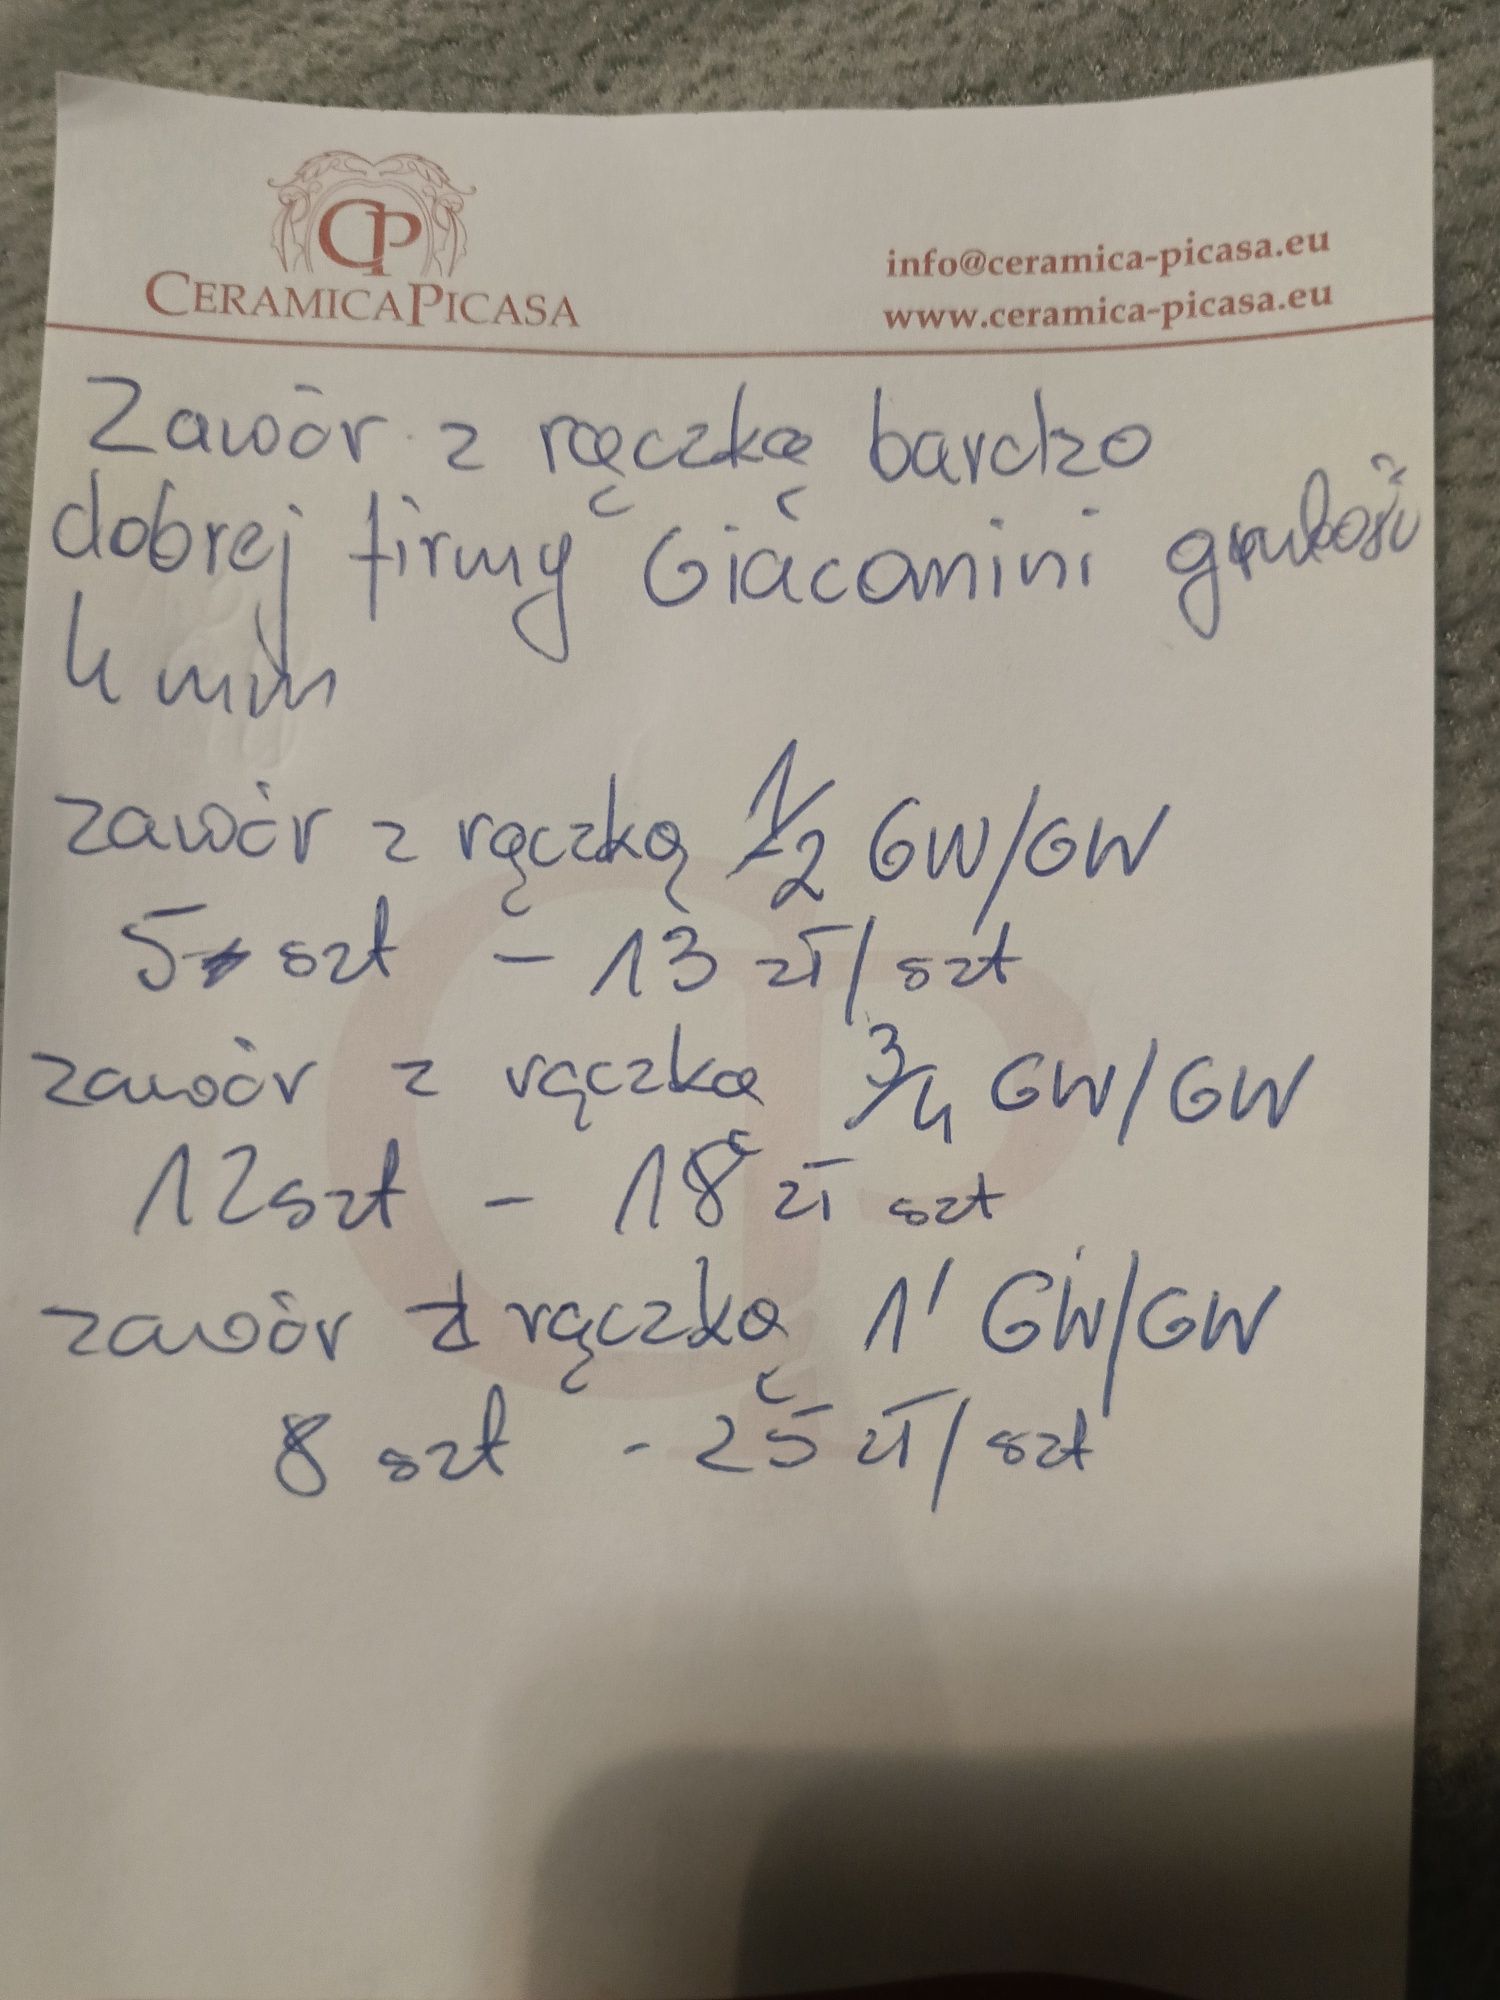 CP
CERAMICAPICASA
info@ceramica-picasa.eu
www.ceramica-picasa.eu
Zawór z rączką bardzo
dobrej firmy Giacomini grubości
4 mm
zawór z rączką 1/2 GW/GW
5 szt - 13 zł/szt
zawór z rączką 3/4 GW/GW
12 szt - 18 zł szt
zawór z rączką 1' GW/GW
8 szt - 25 zł/szt